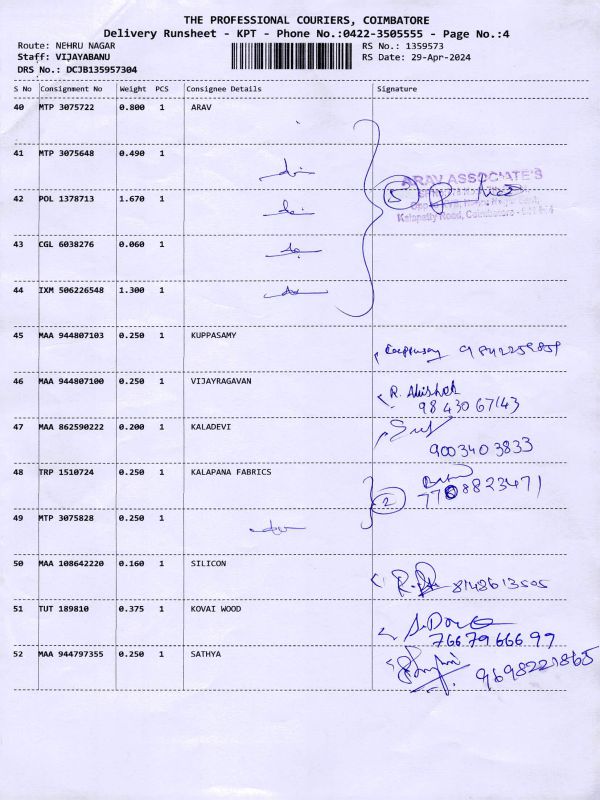 THE PROFESSIONAL COURIERS, COIMBATORE
Delivery Runsheet - KPT - Phone No.:0422-3505555 - Page No.:4
Route: NEHRU NAGAR RS No.: 1359573
Staff: VIJAYABANU RS Date: 29-Apr-2024
DRS No.: DCJB135957304
S No Consignment No Weight PCS Consignee Details Signature
40 MTP 3075722 0.800 1 ARAV
41 MTP 3075648 0.490 1
ARAV ASSOCIATE'S
42 POL 1378713 1.670 1 5
Kalapatty Road, Coimbatore
43 CGL 6038276 0.060 1
44 IXM 506226548 1.300 1
45 MAA 944807103 0.250 1 KUPPASAMY
46 MAA 944807100 0.250 1 VIJAYRAGAVAN R. Abishek
98430 67143
47 MAA 862590222 0.200 1 KALADEVI
9003403833
48 TRP 1510724 0.250 1 KALAPANA FABRICS
7708823471
2
49 MTP 3075828 0.250 1
50 MAA 108642220 0.160 1 SILICON 8148613505
51 TUT 189810 0.375 1 KOVAI WOOD
7667966697
52 MAA 944797355 0.250 1 SATHYA 9698221865